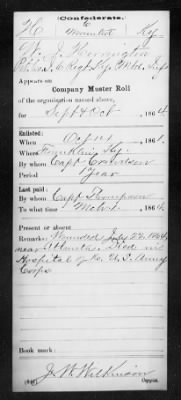 Confederate.
H 6 Mounted Ky.
W. J. Herrington
Appears on
Company Muster Roll
of the organization named above,
for Sept & Oct, 1864
Enlisted:
When Oct 1, 1861.
Where Franklin, Ky.
By whom Capt
Period 1 Year
Last paid:
By whom Capt Thompson
To what time Mch 1, 1864
Present or absent
Remarks: Wounded July 22, 1864
near Atlanta. Died in
Hospital of U. S. Army
Corps
Book mark:
J. W. Wilkinson
Copyist.